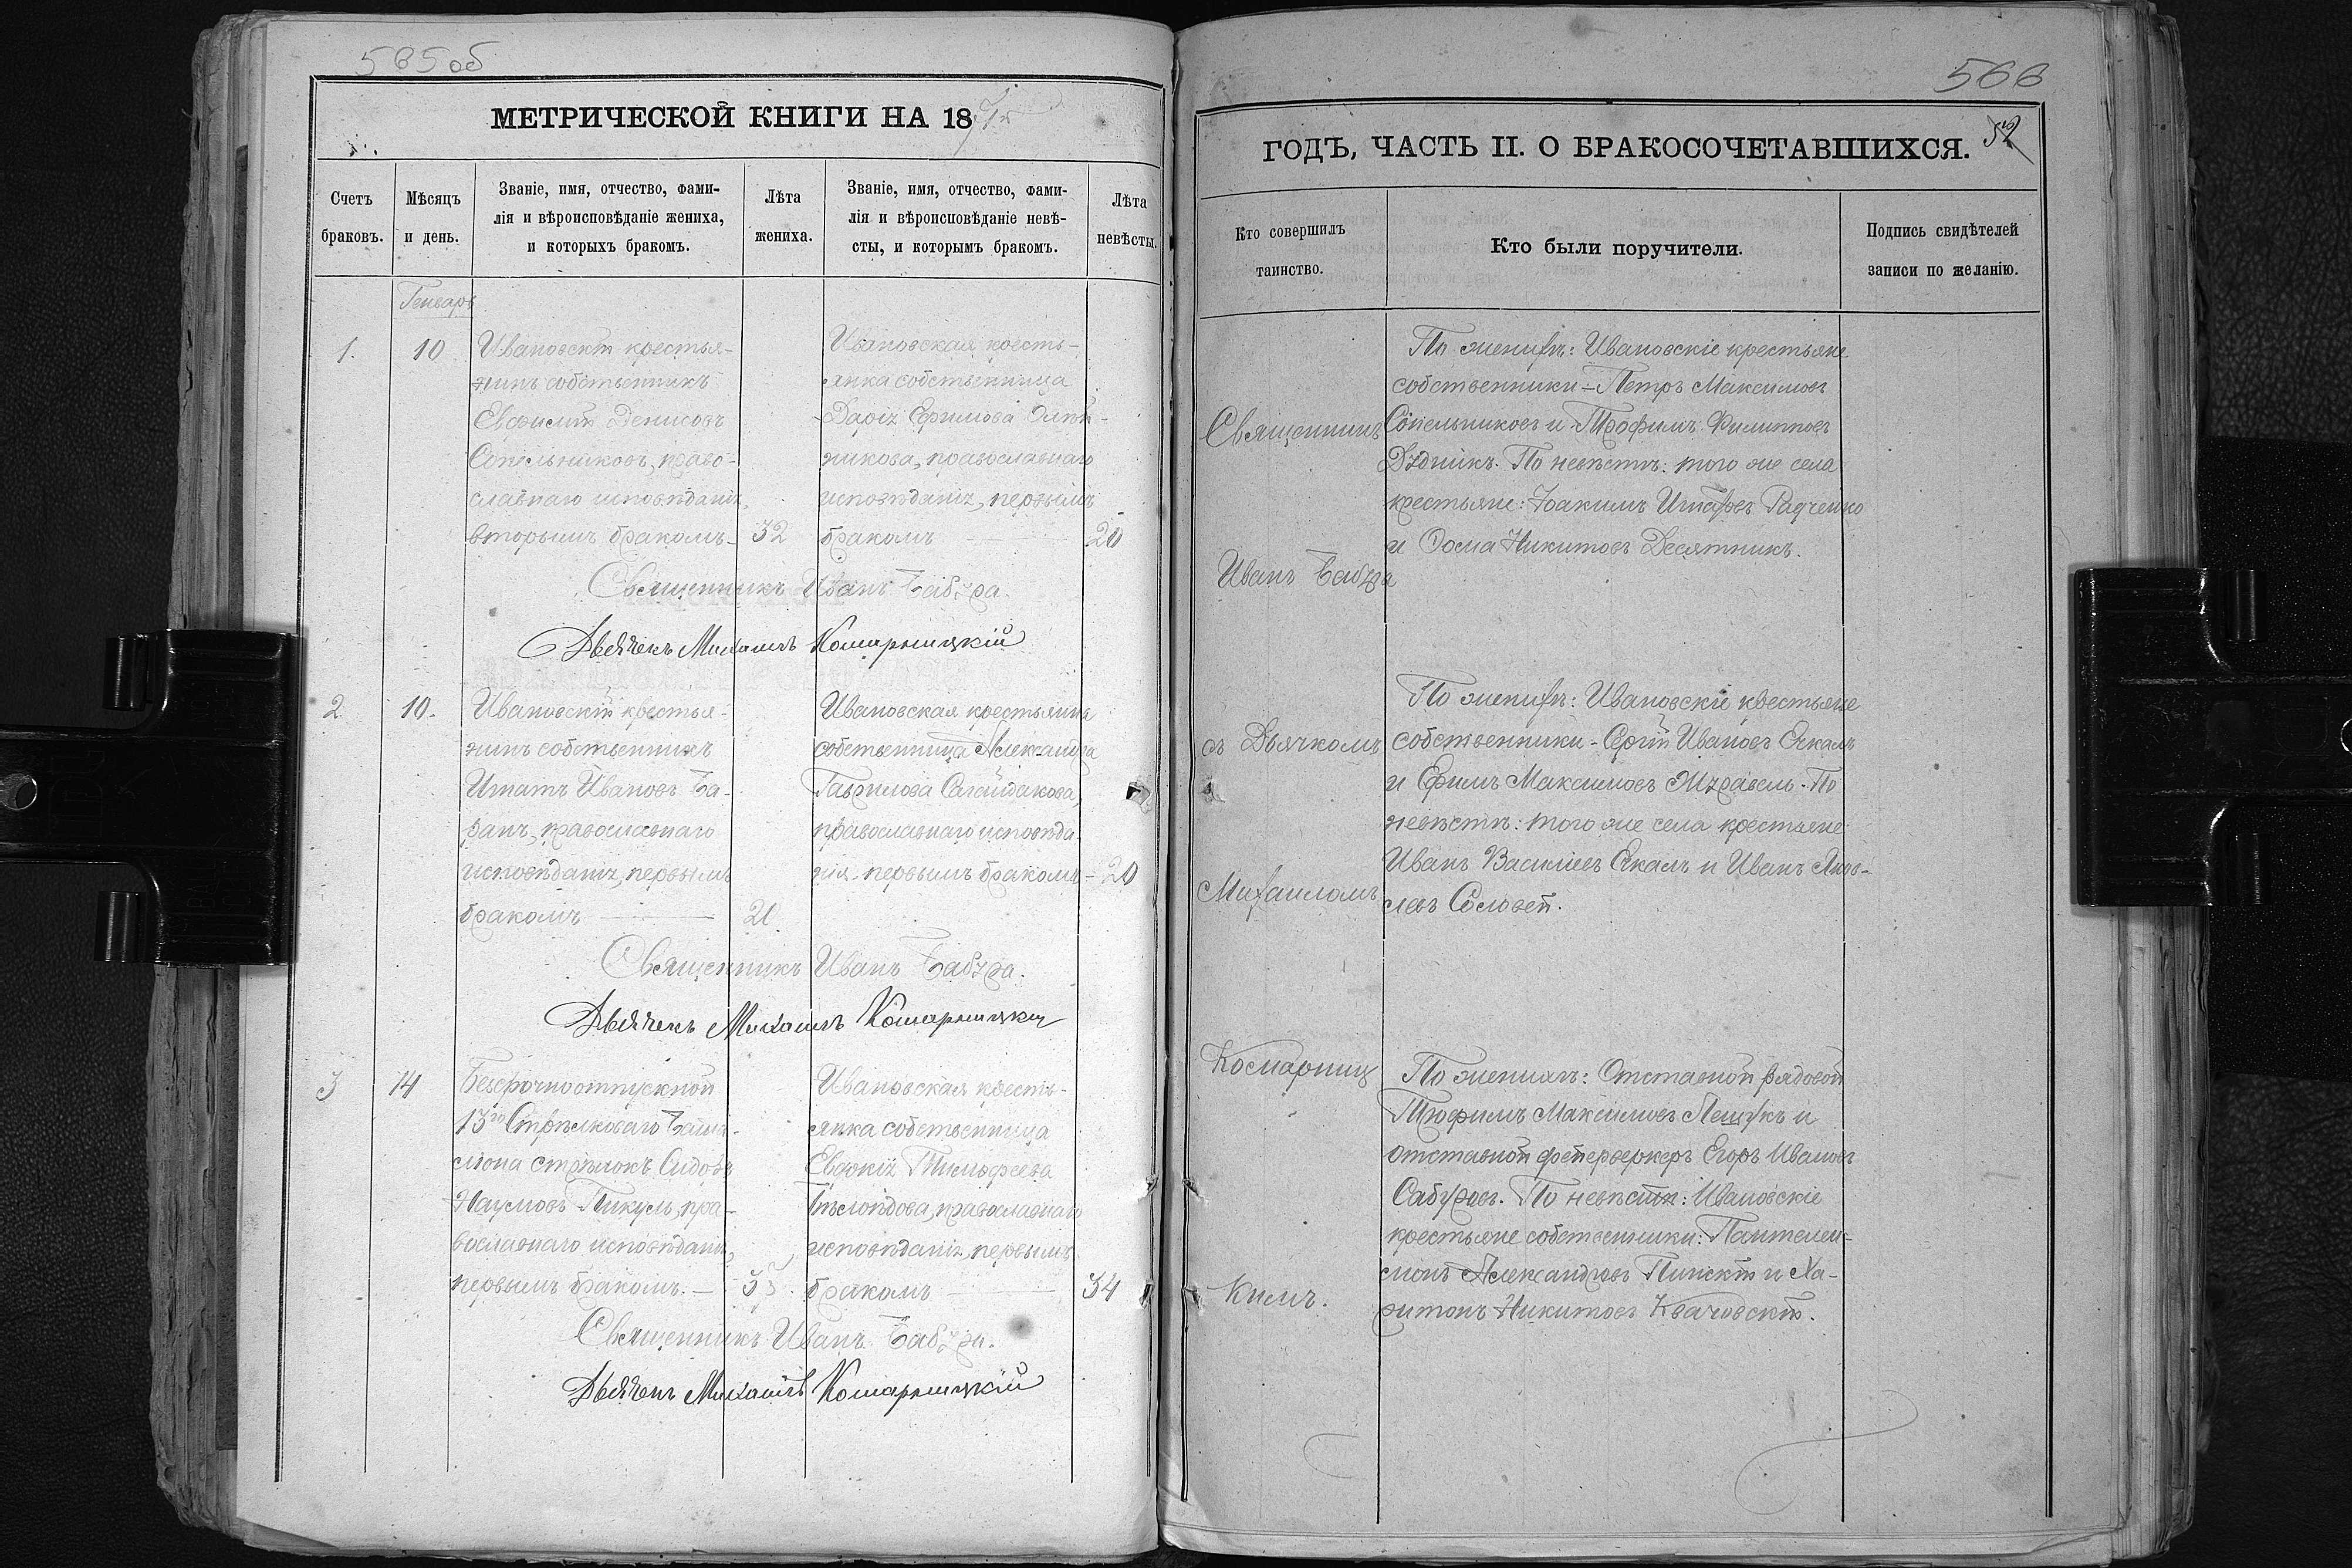 565 об
МЕТРИЧЕСКОЙ КНИГИ НА 18
Счетъ браковъ.
Мѣсяцъ и день.
Званіе, имя, отчество, фами-
лія и вѣроисповѣданіе жениха,
и которыхъ бракомъ.
Лѣта жениха.
Званіе, имя, отчество, фами-
лія и вѣроисповѣданіе невѣ-
сты, и которымъ бракомъ.
Лѣта невѣсты.
Генварь
1. 10
Ивановскій крестья-
нинъ собственникъ
Евфимій Денисовъ
Сопельниковъ, право-
славнаго исповѣданія,
вторымъ бракомъ- 32
Ивановская кресть-
янка собственница
Дарія Ефимова
никова, православнаго
исповѣданія, первымъ
бракомъ 20
Священникъ Иванъ Бабура.
Дьячекъ Михаилъ Комарницкій
2 10.
Ивановскій крестья-
нинъ собственникъ
Игнатъ Ивановъ Ба-
ранъ, православнаго
исповѣданія, первымъ
бракомъ 21
Ивановская крестьянка
собственница Александра
Гаврилова Сагайдакова,
православнаго исповѣда-
нія первымъ бракомъ- 20
Священникъ Иванъ Бабура.
Дьячекъ Михаилъ Комарницкій
3 14
Безсрочноотпускной
13го Стрѣлковаго Бата-
ліона стрѣлокъ Сидоръ
Наумовъ Пикуль, пра-
вославнаго исповѣданія,
первымъ бракомъ.- 33.
Ивановская кресть-
янка собственница
Евдокія Тимофеева
Бѣлоѣдова, православнаго
исповѣданія, первымъ
бракомъ 34
Священникъ Иванъ Бабура.
Дьячекъ Михаилъ Комарницкій
566
52
ГОДЪ, ЧАСТЬ II. О БРАКОСОЧЕТАВШИХСЯ.
Кто совершилъ
таинство.
Кто были поручители.
Подпись свидѣтелей
записи по желанію.
Священникъ
Иванъ Бабура
съ Дьячкомъ
Михаиломъ
Комарниц
кимъ.
По женихѣ: Ивановскіе крестьяне
собственники - Петръ Максимовъ
Сопельниковъ и Трофимъ Филипповъ
Дудникъ. По невѣстѣ: того же села
крестьяне: Іоакимъ Игнатовъ Радченко
и Ѳома Никитовъ Десятникъ.
По женихѣ: Ивановскіе крестьяне
собственники - Сергій Ивановъ
и Ефимъ Максимовъ Журавель. По
невѣстѣ: того же села крестьяне
Иванъ Василіевъ и Иванъ
Соловей.
По женихѣ: Отставной рядовой
Трофимъ Максимовъ Лещукъ и
отставной фейерверкеръ Егоръ Ивановъ
Сабуровъ. По невѣстѣ: Ивановскіе
крестьяне собственники: Пантелеи-
монъ Александровъ Пинскій и Ха-
ритонъ Никитовъ Квачовскій.